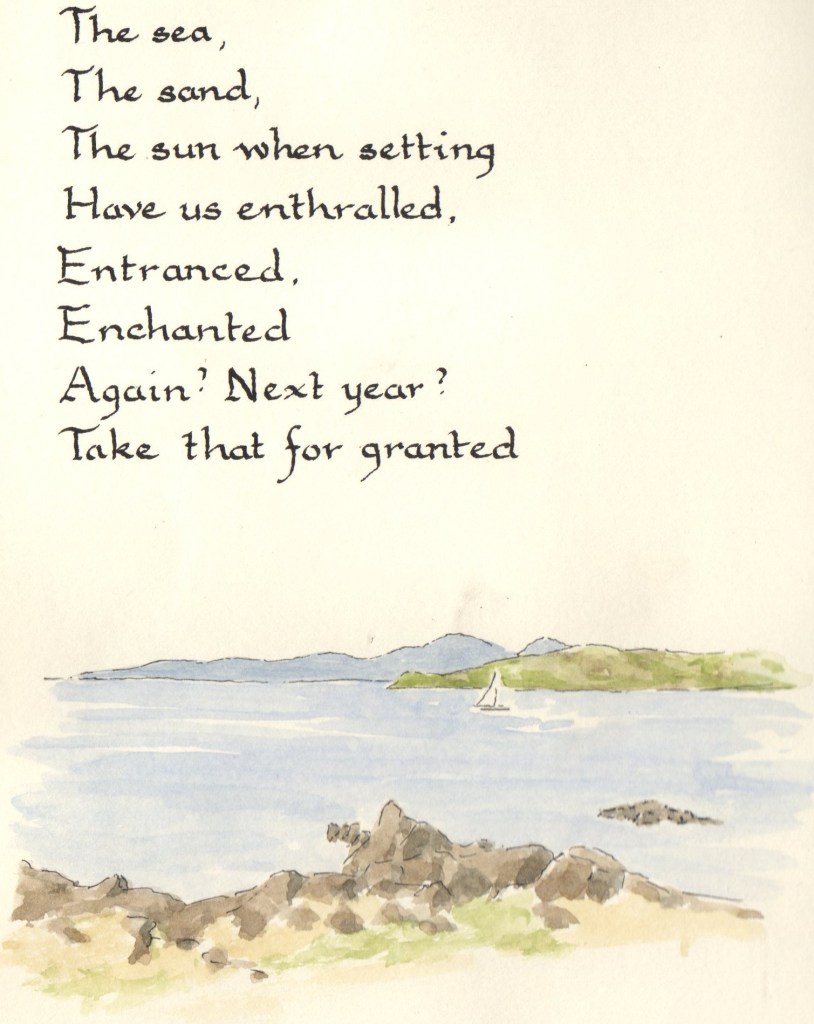 The sea,
The sand,
The sun when setting
Have us enthralled,
Entranced,
Enchanted
Again? Next year?
Take that for granted